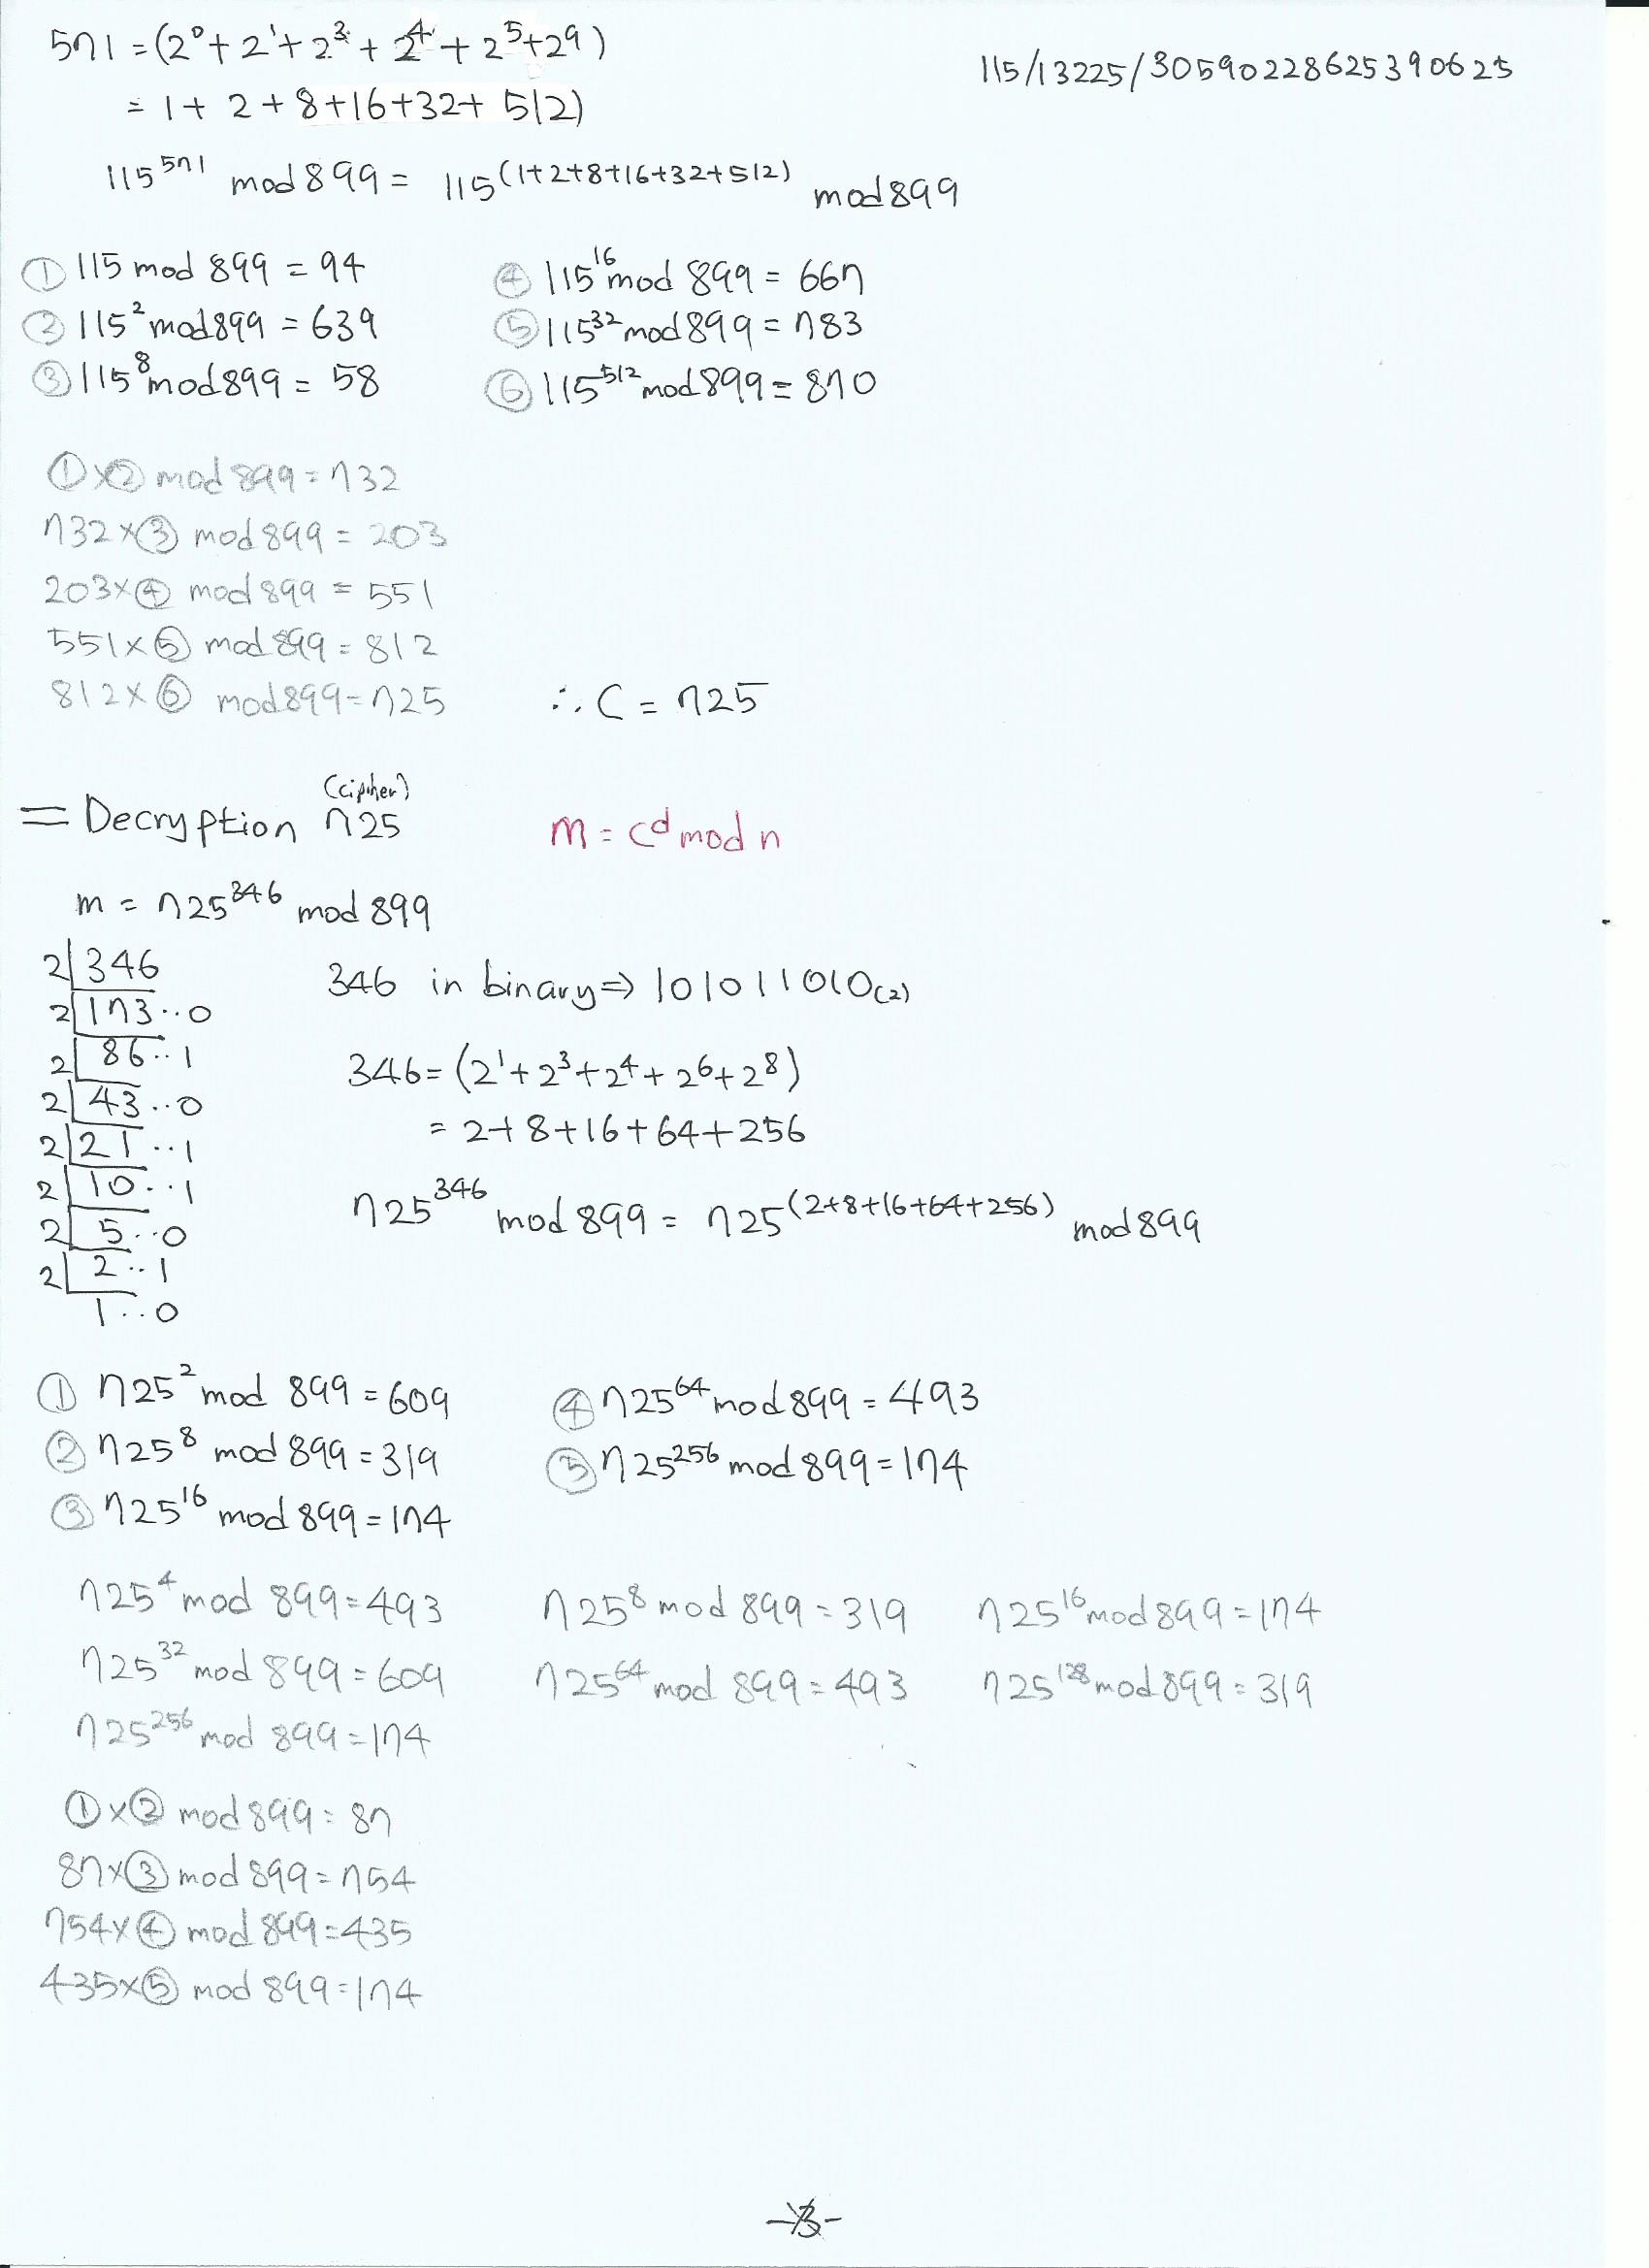 571 = (2⁰ + 2¹ + 2³ + 2⁴ + 2⁵ + 2⁹)
= 1 + 2 + 8 + 16 + 32 + 512)
115/13225/30590228625390625
115⁵⁷¹ mod 899 = 115⁽¹⁺²⁺⁸⁺¹⁶⁺³²⁺⁵¹²⁾ mod 899
① 115 mod 899 = 94
② 115² mod 899 = 639
③ 115⁸ mod 899 = 58
④ 115¹⁶ mod 899 = 667
⑤ 115³² mod 899 = 783
⑥ 115⁵¹² mod 899 = 870
①×② mod 899 = 732
732×③ mod 899 = 203
203×④ mod 899 = 551
551×⑤ mod 899 = 812
812×⑥ mod 899 = 725
∴ C = 725
= Decryption 725 (cipher)
m = cᵈ mod n
m = 725³⁴⁶ mod 899
2|346
2|173..0
2|86..1
2|43..0
2|21..1
2|10..1
2|5..0
2|2..1
1..0
346 in binary ⇒ 101011010₍₂₎
346 = (2¹ + 2³ + 2⁴ + 2⁶ + 2⁸)
= 2 + 8 + 16 + 64 + 256
725³⁴⁶ mod 899 = 725⁽²⁺⁸⁺¹⁶⁺⁶⁴⁺²⁵⁶⁾ mod 899
① 725² mod 899 = 609
② 725⁸ mod 899 = 319
③ 725¹⁶ mod 899 = 174
④ 725⁶⁴ mod 899 = 493
⑤ 725²⁵⁶ mod 899 = 174
725⁴ mod 899 = 493 725⁸ mod 899 = 319 725¹⁶ mod 899 = 174
725³² mod 899 = 609 725⁶⁴ mod 899 = 493 725¹²⁸ mod 899 = 319
725²⁵⁶ mod 899 = 174
①×② mod 899 = 87
87×③ mod 899 = 754
754×④ mod 899 = 435
435×⑤ mod 899 = 174